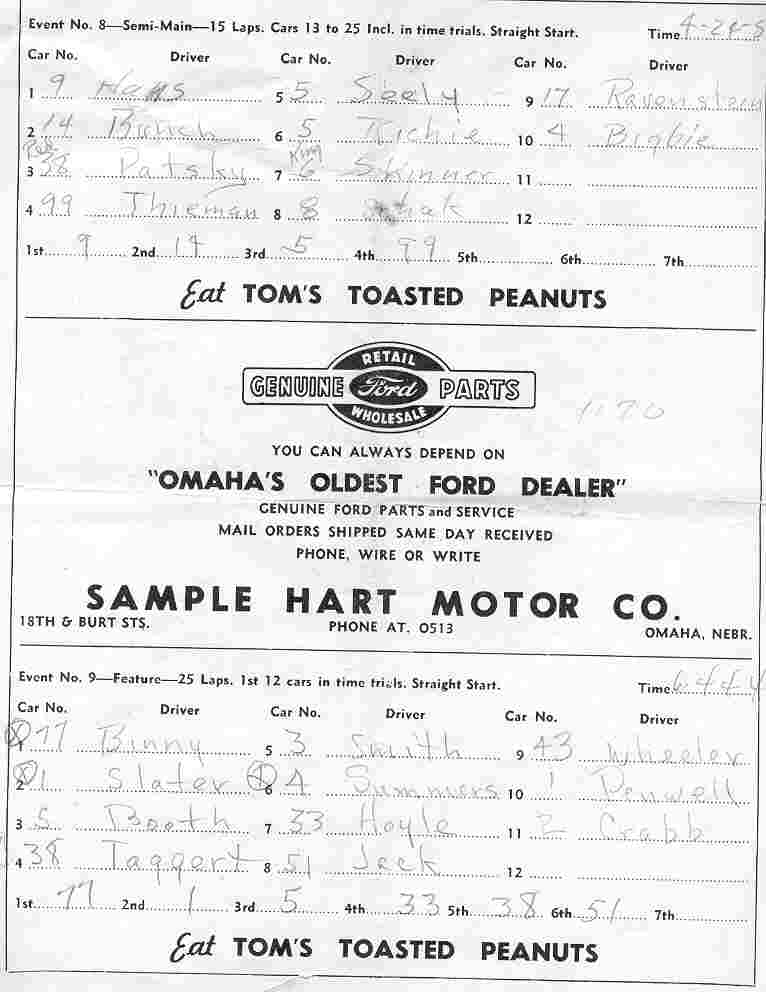 Event No. 8—Semi-Main—15 Laps. Cars 13 to 25 Incl. in time trials. Straight Start. Time 4-24-5
Car No. Driver Car No. Driver Car No. Driver
1 9 5 5 Seely 9 17 Ravenstein
2 14 Bunch 6 5 Richie 10 4 Bigbie
Red King
3 38 Patsky 7 6 Skinner 11
4 99 Thieman 8 8 12
1st 9 2nd 14 3rd 5 4th 99 5th 6th 7th
Eat TOM'S TOASTED PEANUTS
RETAIL
GENUINE Ford PARTS
WHOLESALE
1170
YOU CAN ALWAYS DEPEND ON
"OMAHA'S OLDEST FORD DEALER"
GENUINE FORD PARTS and SERVICE
MAIL ORDERS SHIPPED SAME DAY RECEIVED
PHONE, WIRE OR WRITE
SAMPLE HART MOTOR CO.
18TH & BURT STS. PHONE AT. 0513 OMAHA, NEBR.
Event No. 9—Feature—25 Laps. 1st 12 cars in time trials. Straight Start. Time 6-44-4
Car No. Driver Car No. Driver Car No. Driver
1 77 Binny 5 3 Smith 9 43 Wheeler
2 1 Slater 6 4 Summers 10 1 Penwell
3 5 Booth 7 33 Hoyle 11 2 Crabb
4 38 Taggert 8 51 Jeck 12
1st 77 2nd 1 3rd 5 4th 33 5th 38 6th 51 7th
Eat TOM'S TOASTED PEANUTS